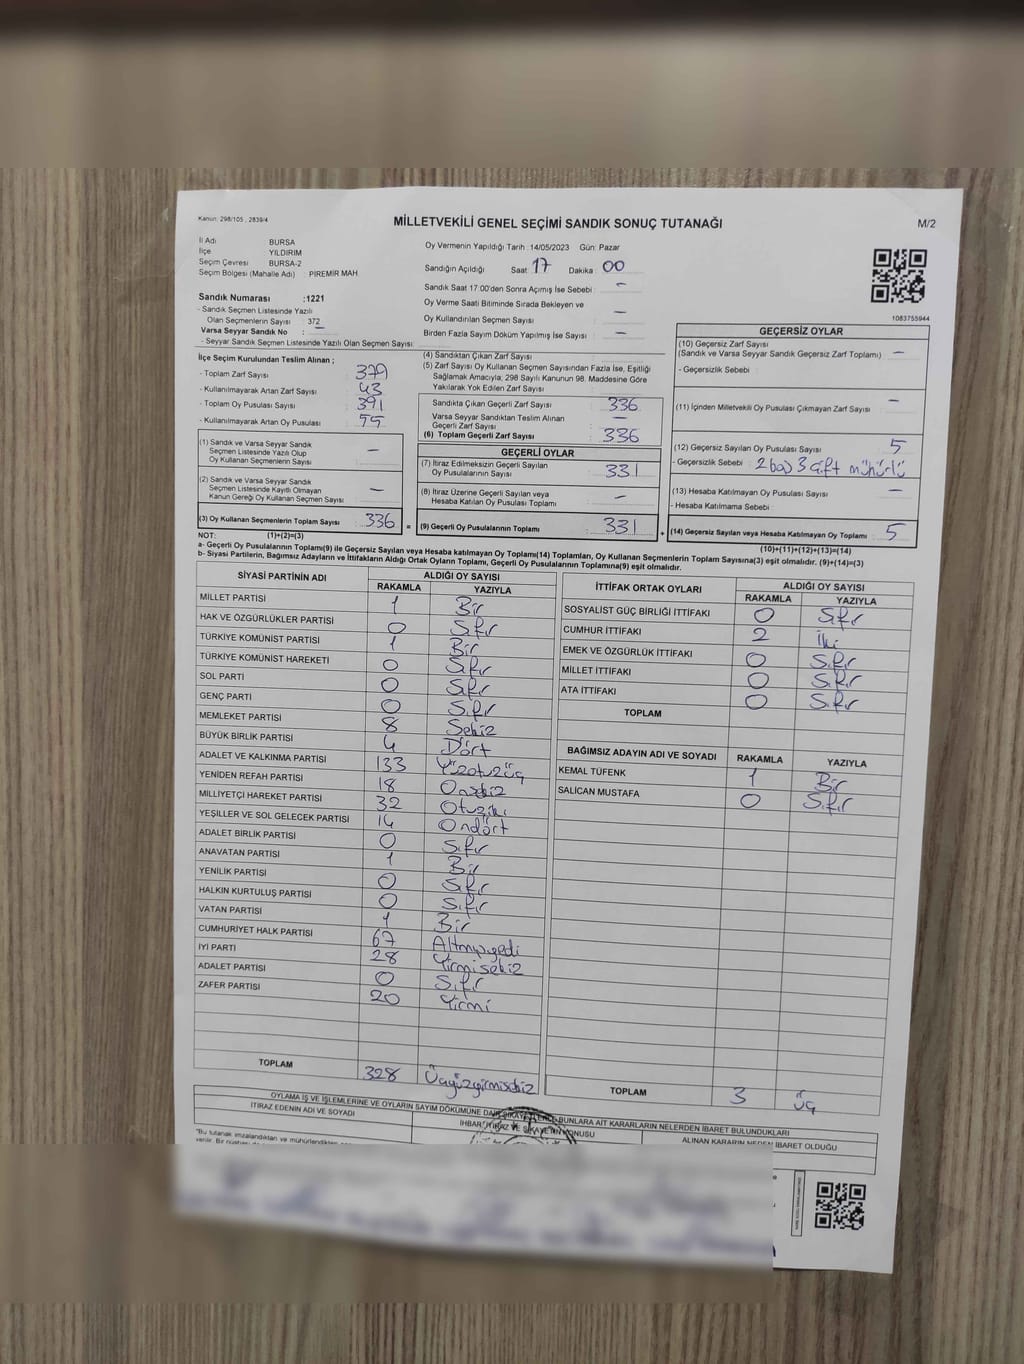 Kanun, 298/105 , 2839/4
MİLLETVEKİLİ GENEL SEÇİMİ SANDIK SONUÇ TUTANAĞI
M/2
İl Adı BURSA
İlçe YILDIRIM
Seçim Çevresi BURSA-2
Seçim Bölgesi (Mahalle Adı) : PİREMİR MAH.
Oy Vermenin Yapıldığı Tarih :14/05/2023 Gün: Pazar
Sandığın Açıldığı Saat 17 Dakika 00
Sandık Saat 17:00'den Sonra Açımış İse Sebebi : -
Oy Verme Saati Bitiminde Sırada Bekleyen ve
Oy Kullandırılan Seçmen Sayısı : -
Birden Fazla Sayım Döküm Yapılmış İse Sayısı : -
1083755944
Sandık Numarası :1221
- Sandık Seçmen Listesinde Yazılı
Olan Seçmenlerin Sayısı : 372
Varsa Seyyar Sandık No : -
- Seyyar Sandık Seçmen Listesinde Yazılı Olan Seçmen Sayısı:
İlçe Seçim Kurulundan Teslim Alınan ;
- Toplam Zarf Sayısı : 379
- Kullanılmayarak Artan Zarf Sayısı : 43
- Toplam Oy Pusulası Sayısı : 391
- Kullanılmayarak Artan Oy Pusulası : 55
(1) Sandık ve Varsa Seyyar Sandık
Seçmen Listesinde Yazılı Olup
Oy Kullanan Seçmenlerin Sayısı : -
(2) Sandık ve Varsa Seyyar Sandık
Seçmen Listesinde Kayıtlı Olmayan
Kanun Gereği Oy Kullanan Seçmen Sayısı : -
(3) Oy Kullanan Seçmenlerin Toplam Sayısı : 336 =
(4) Sandıktan Çıkan Zarf Sayısı :
(5) Zarf Sayısı Oy Kullanan Seçmen Sayısından Fazla İse, Eşitliği
Sağlamak Amacıyla; 298 Sayılı Kanunun 98. Maddesine Göre
Yakılarak Yok Edilen Zarf Sayısı :
Sandıkta Çıkan Geçerli Zarf Sayısı : 336
Varsa Seyyar Sandıktan Teslim Alınan
Geçerli Zarf Sayısı : -
(6) Toplam Geçerli Zarf Sayısı : 336
GEÇERLİ OYLAR
(7) İtiraz Edilmeksizin Geçerli Sayılan
Oy Pusulalarının Sayısı : 331
(8) İtiraz Üzerine Geçerli Sayılan veya
Hesaba Katılan Oy Pusulası Toplamı : -
(9) Geçerli Oy Pusulalarının Toplamı : 331 +
GEÇERSİZ OYLAR
(10) Geçersiz Zarf Sayısı
(Sandık ve Varsa Seyyar Sandık Geçersiz Zarf Toplamı) : -
- Geçersizlik Sebebi :
(11) İçinden Milletvekili Oy Pusulası Çıkmayan Zarf Sayısı : -
(12) Geçersiz Sayılan Oy Pusulası Sayısı : 5
- Geçersizlik Sebebi : 2 boş 3 çift mühürlü
(13) Hesaba Katılmayan Oy Pusulası Sayısı : -
- Hesaba Katılmama Sebebi :
(14) Geçersiz Sayılan veya Hesaba Katılmayan Oy Toplamı : 5
NOT: (1)+(2)=(3)
(10)+(11)+(12)+(13)=(14)
a- Geçerli Oy Pusulalarının Toplamı(9) ile Geçersiz Sayılan veya Hesaba katılmayan Oy Toplamı(14) Toplamları, Oy Kullanan Seçmenlerin Toplam Sayısına(3) eşit olmalıdır. (9)+(14)=(3)
b- Siyasi Partilerin, Bağımsız Adayların ve İttifakların Aldığı Ortak Oyların Toplamı, Geçerli Oy Pusulalarının Toplamına(9) eşit olmalıdır.
SİYASİ PARTİNİN ADI ALDIĞI OY SAYISI
RAKAMLA YAZIYLA
MİLLET PARTİSİ 1 Bir
HAK VE ÖZGÜRLÜKLER PARTİSİ 0 Sıfır
TÜRKİYE KOMÜNİST PARTİSİ 1 Bir
TÜRKİYE KOMÜNİST HAREKETİ 0 Sıfır
SOL PARTİ 0 Sıfır
GENÇ PARTİ 0 Sıfır
MEMLEKET PARTİSİ 8 Sekiz
BÜYÜK BİRLİK PARTİSİ 4 Dört
ADALET VE KALKINMA PARTİSİ 133 Yüzotuzüç
YENİDEN REFAH PARTİSİ 18 Onsekiz
MİLLİYETÇİ HAREKET PARTİSİ 32 Otuziki
YEŞİLLER VE SOL GELECEK PARTİSİ 14 Ondört
ADALET BİRLİK PARTİSİ 0 Sıfır
ANAVATAN PARTİSİ 1 Bir
YENİLİK PARTİSİ 0 Sıfır
HALKIN KURTULUŞ PARTİSİ 0 Sıfır
VATAN PARTİSİ 1 Bir
CUMHURİYET HALK PARTİSİ 67 Altmışyedi
İYİ PARTİ 28 Yirmisekiz
ADALET PARTİSİ 0 Sıfır
ZAFER PARTİSİ 20 Yirmi
TOPLAM 328 Üçyüzyirmisekiz
İTTİFAK ORTAK OYLARI ALDIĞI OY SAYISI
RAKAMLA YAZIYLA
SOSYALİST GÜÇ BİRLİĞİ İTTİFAKI 0 Sıfır
CUMHUR İTTİFAKI 2 İki
EMEK VE ÖZGÜRLÜK İTTİFAKI 0 Sıfır
MİLLET İTTİFAKI 0 Sıfır
ATA İTTİFAKI 0 Sıfır
TOPLAM
BAĞIMSIZ ADAYIN ADI VE SOYADI RAKAMLA YAZIYLA
KEMAL TÜFENK 1 Bir
SALİCAN MUSTAFA 0 Sıfır
TOPLAM 3 Üç
OYLAMA İŞ VE İŞLEMLERİNE VE OYLARIN SAYIM DÖKÜMÜNE DAİR ŞİKAYETLERLE BUNLARA AİT KARARLARIN NELERDEN İBARET BULUNDUKLARI
İTİRAZ EDENİN ADI VE SOYADI
İHBAR, İTİRAZ VE ŞİKAYETİN KONUSU
ALINAN KARARIN NEDEN İBARET OLDUĞU
"Bu tutanak imzalandıktan ve mühürlendikten